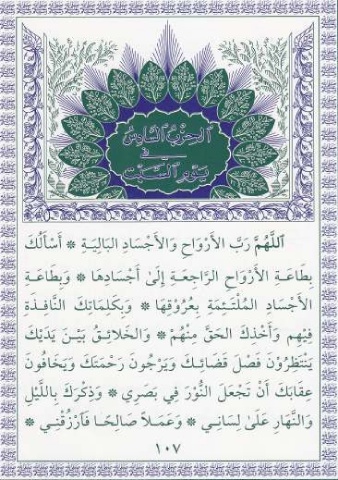 الحزب السادس
في
يوم السبت
اَللَّهُمَّ رَبَّ الْأَرْوَاحِ وَالْأَجْسَادِ الْبَالِيَةِ ۞ أَسْأَلُكَ
بِطَاعَةِ الْأَرْوَاحِ الرَّاجِعَةِ إِلَىٰ أَجْسَادِهَا ۞ وَبِطَاعَةِ
الْأَجْسَادِ الْمُلْتَئِمَةِ بِعُرُوقِهَا ۞ وَبِكَلِمَاتِكَ النَّافِذَةِ
فِيهِم وَأَخْذِكَ الْحَقَّ مِنْهُمْ ۞ وَالْخَلَائِقُ بَيْنَ يَدَيْكَ
يَنْتَظِرُونَ فَصْلَ قَضَائِكَ وَيَرْجُونَ رَحْمَتَكَ وَيَخَافُونَ
عِقَابَكَ أَنْ تَجْعَلَ النُّورَ فِي بَصَرِي ۞ وَذِكْرَكَ بِاللَّيْلِ
وَالنَّهَارِ عَلَىٰ لِسَانِي ۞ وَعَمَلاً صَالِحًا فَارْزُقْنِي ۞
١٠٧